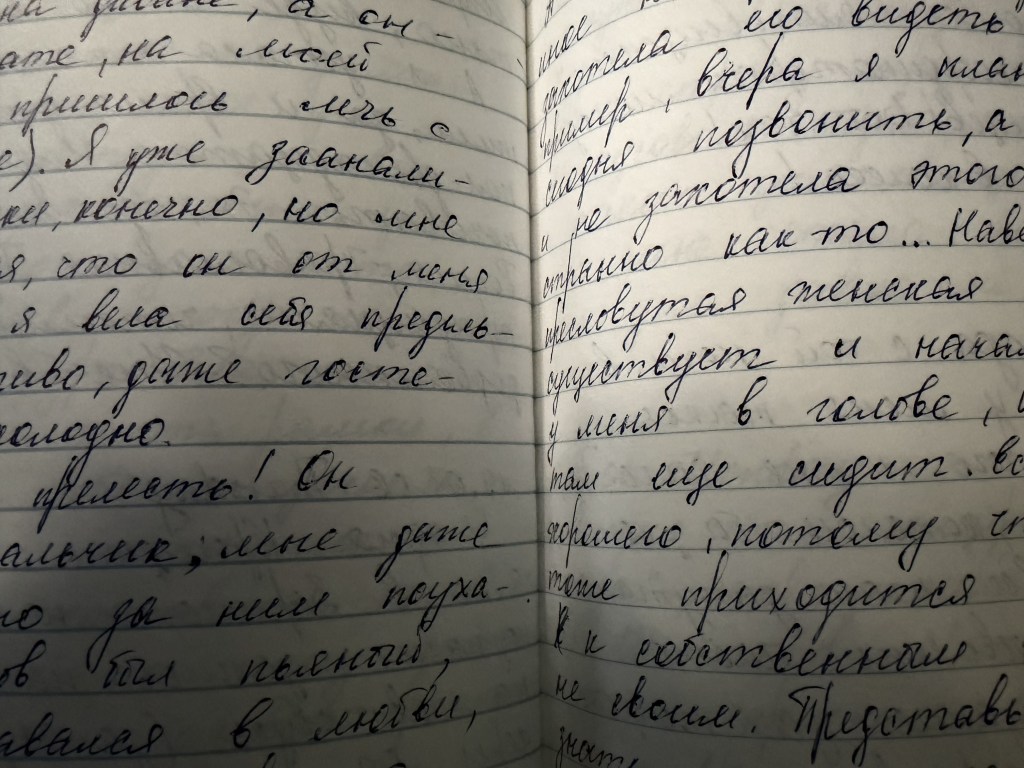 на диване, а он -
ате, на моей
пришлось лечь с
е). Я уже заанали-
ки, конечно, но мне
я, что он от меня
я вела себя предель-
иво, даже госте-
холодно.
прелесть! Он
альчик; мне даже
но за ним поуха-
ов был пьяный,
авался в любви,
захотела его видеть
пример, вчера я план
сегодня позвонить, а
и не захотела этого
странно как то... Наве
пресловутая женская
существует и начал
у меня в голове, и
там еще сидит. вс
хорошего, потому чт
тоже приходится
к к собственным
не своим. Представь
знать